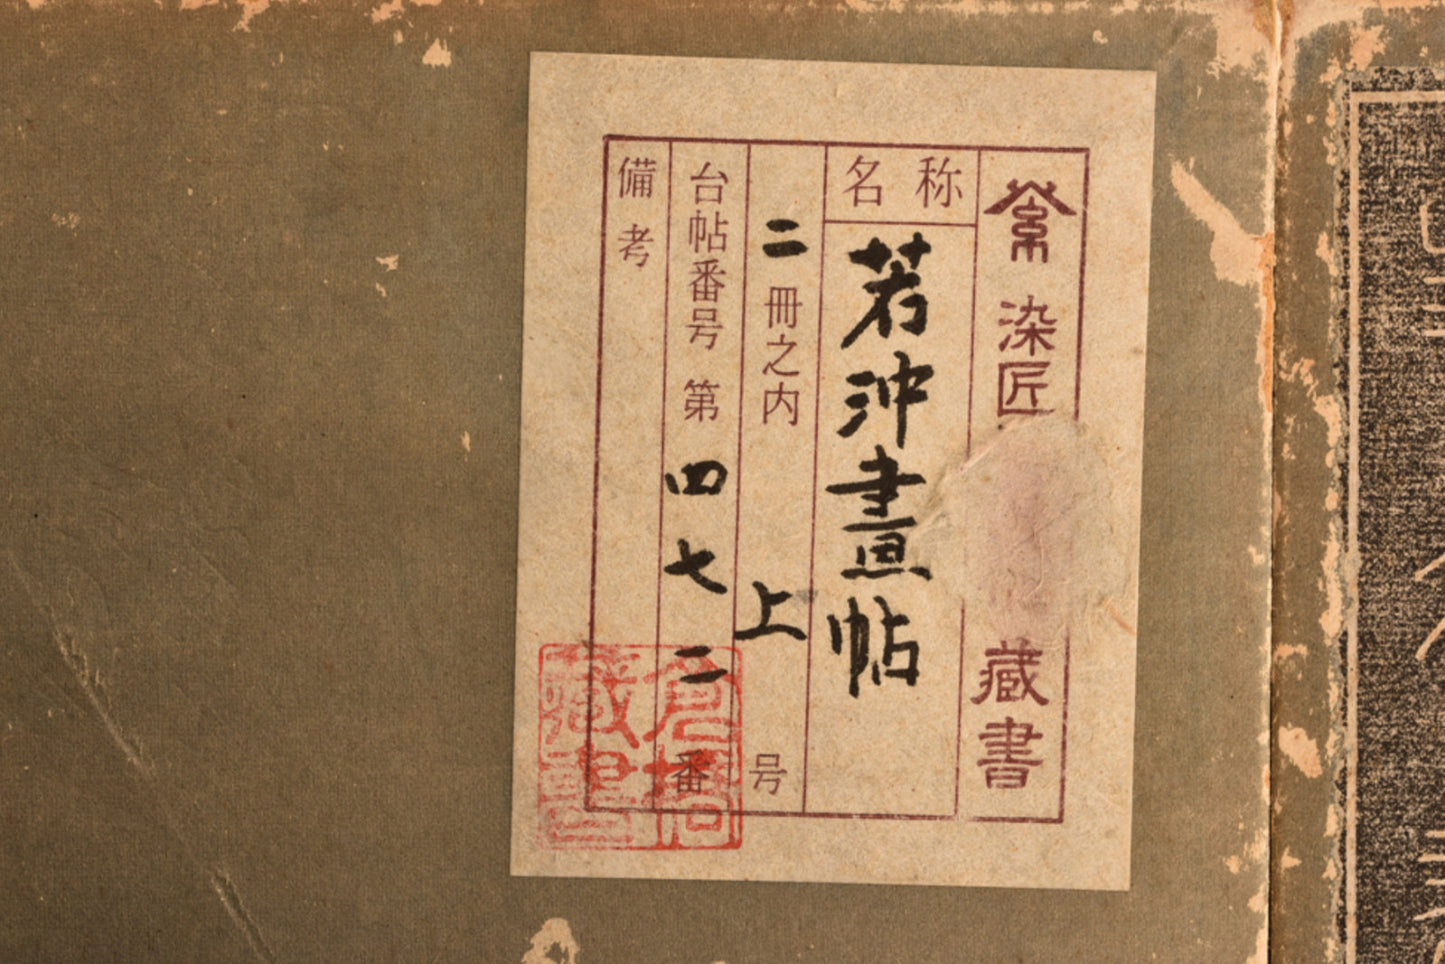 染匠
藏書
名称
若冲畫帖
二冊之内 上号
台帖番号 第四七二番
備考
藏書